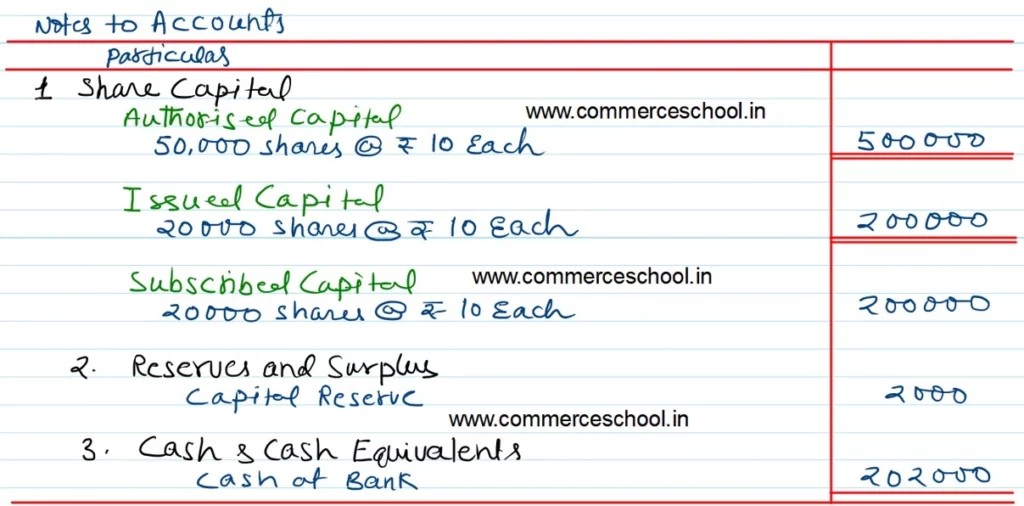 Notes to Accounts
Particulas
1 Share Capital
Authorised Capital www.commerceschool.in
50,000 shares @ ₹ 10 Each 500000
Issued Capital
20000 shares @ ₹ 10 Each 200000
Subscribed Capital www.commerceschool.in
20000 shares @ ₹ 10 Each 200000
2. Reserves and Surplus
Capital Reserve 2000
www.commerceschool.in
3. Cash & Cash Equivalents
Cash at Bank 202000